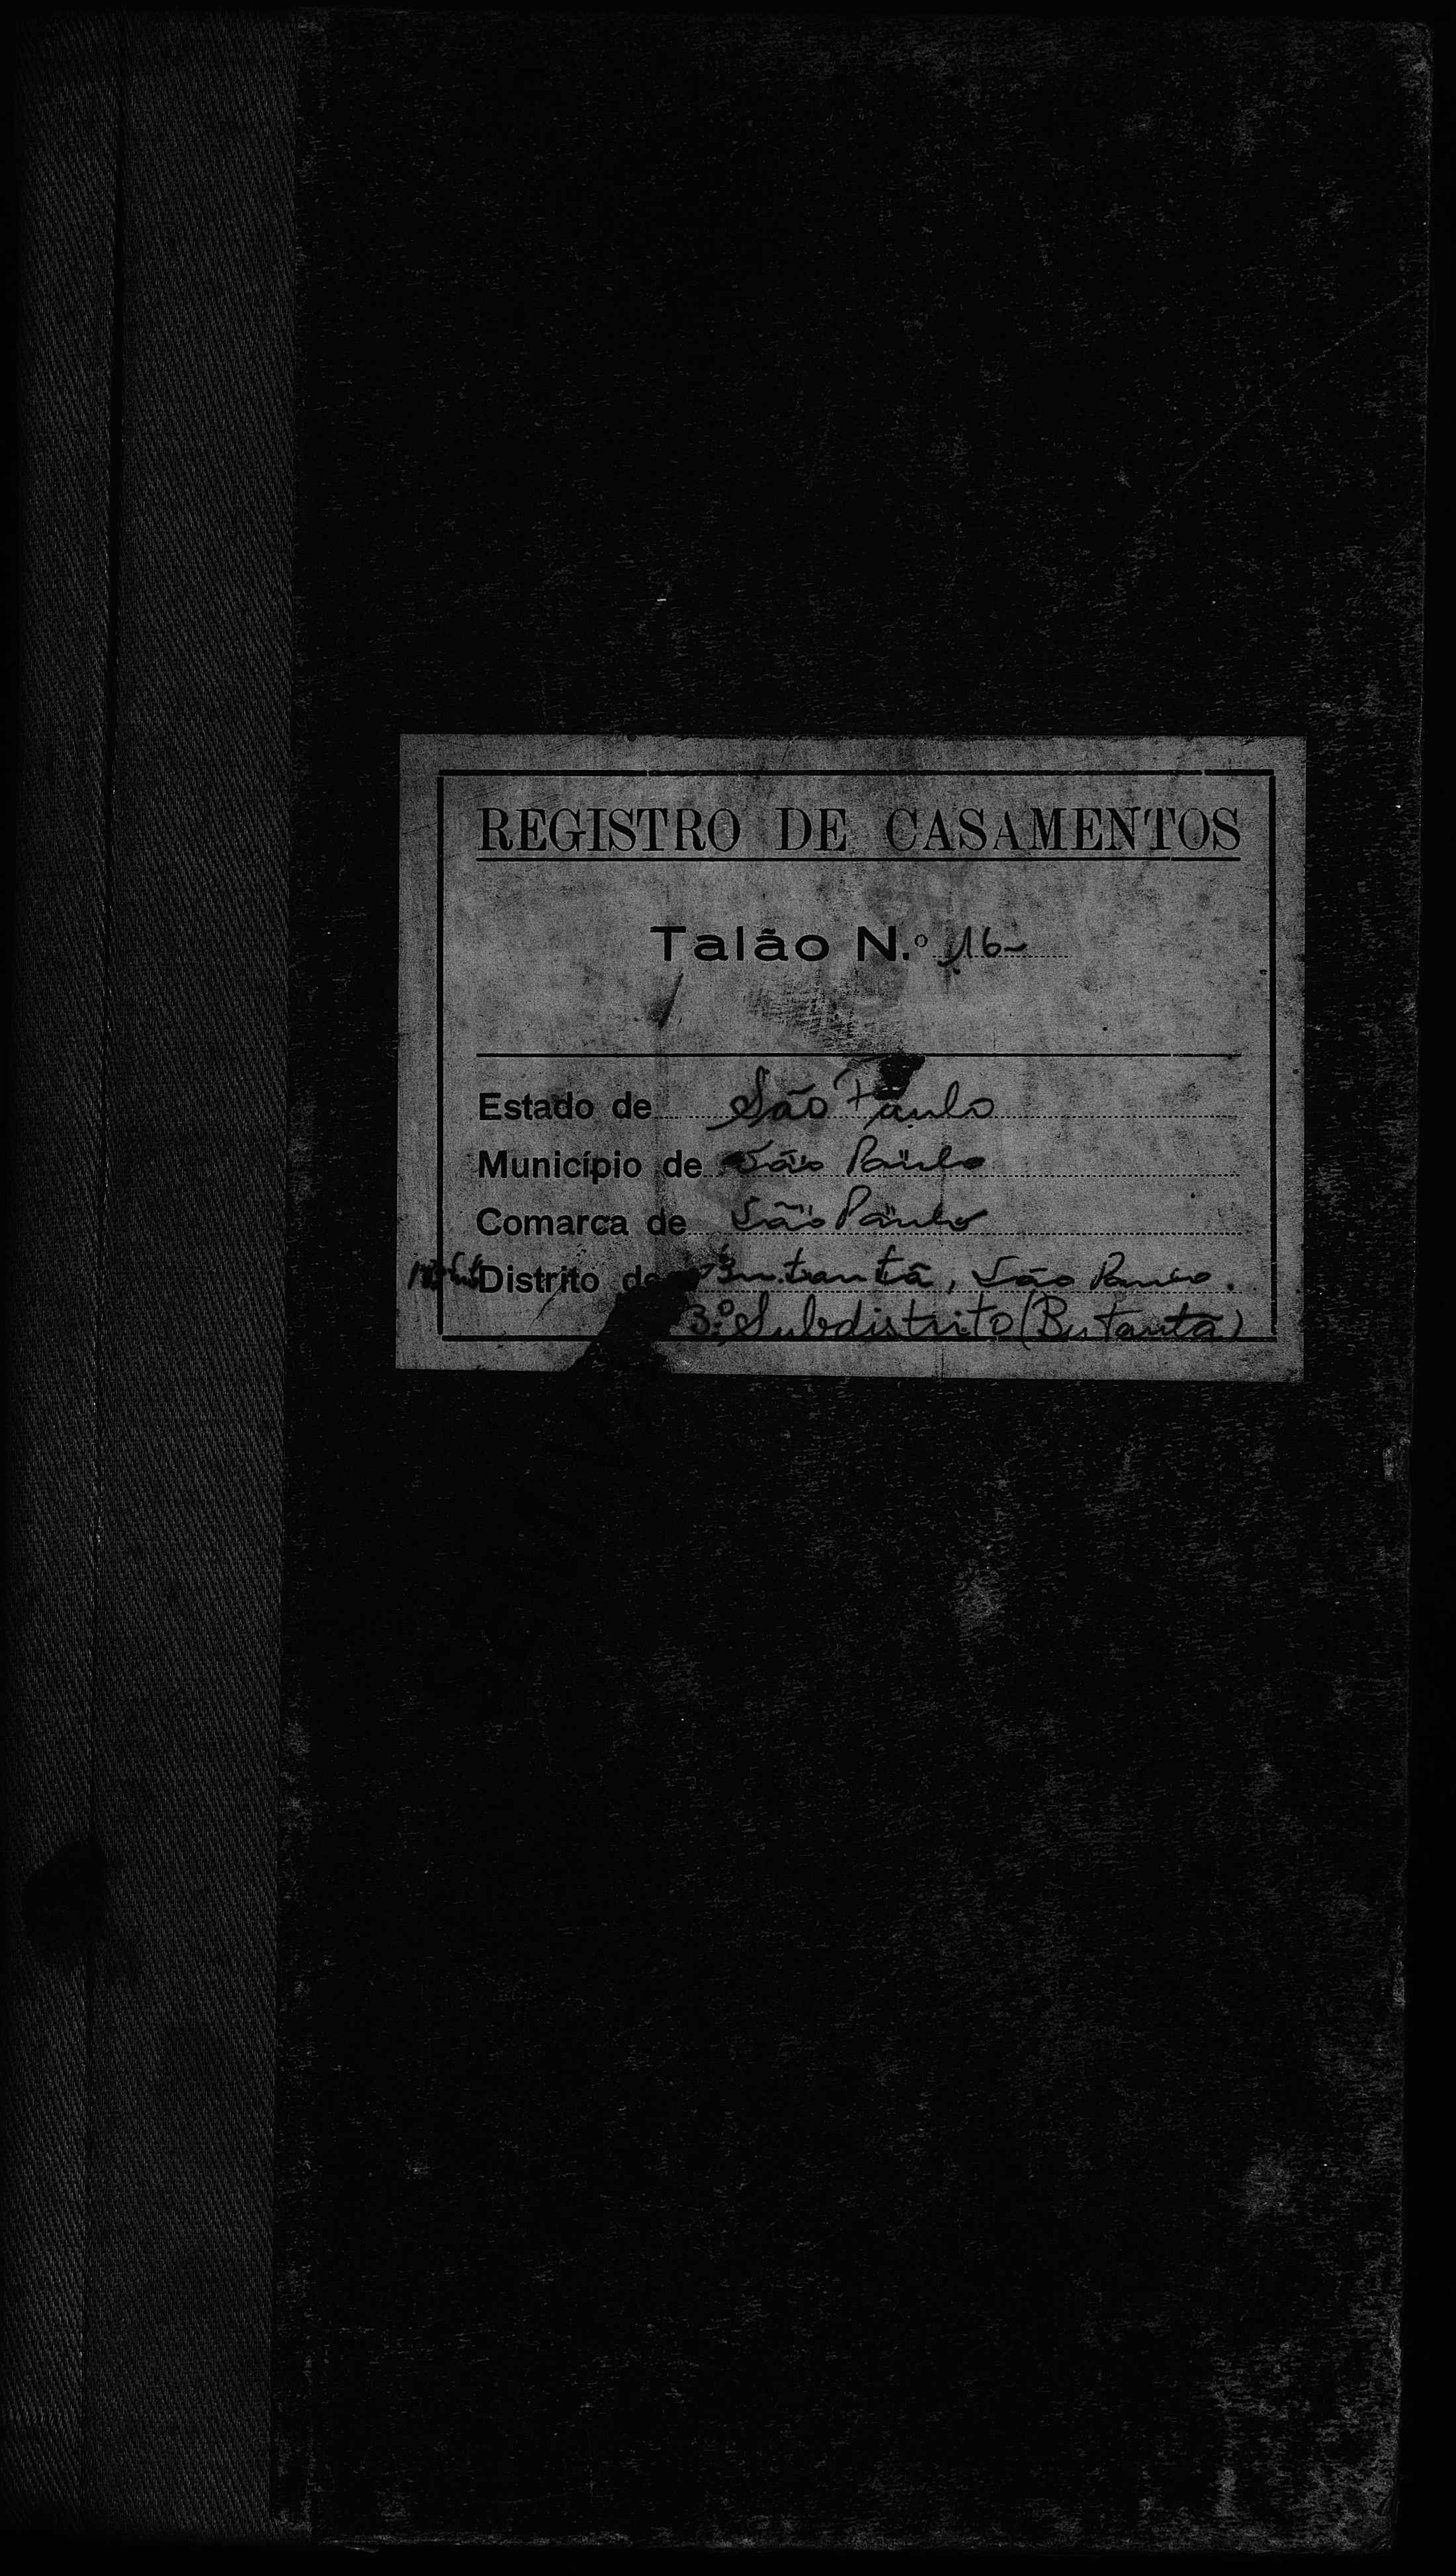 REGISTRO DE CASAMENTOS
Talão N.º 16-
Estado de São Paulo
Município de São Paulo
Comarca de São Paulo
Distrito de Butantã, São Paulo.
13.º Subdistrito (Butantã)